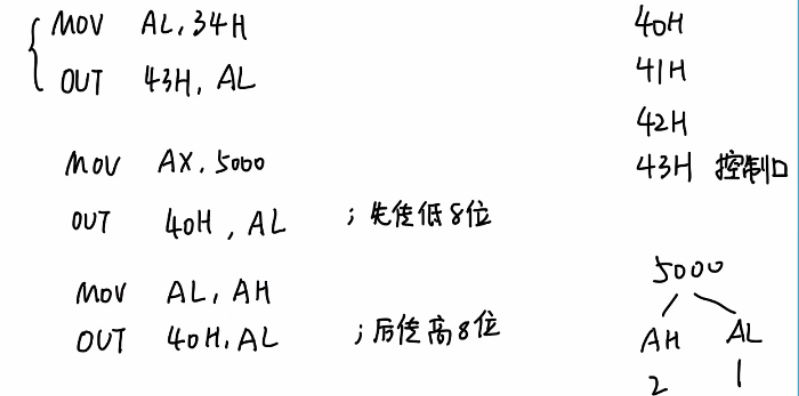 MOV AL, 34H
OUT 43H, AL
MOV AX, 5000
OUT 40H, AL ;先传低8位
MOV AL, AH
OUT 40H, AL ;后传高8位
40H
41H
42H
43H 控制口
5000
AH AL
2 1